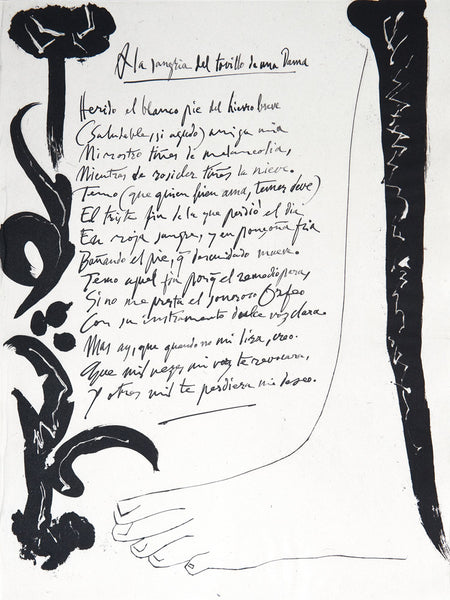 A la sangria del tovillo de una Dama
Herido el blanco pie del hierro breve
(Saludable, si agudo) amiga mia
Mi rostro tiñes de melancolia,
Mientras de rosicler tiñes la nieve.
Temo (que quien bien ama, temer deve)
El triste fin de la que perdió el dia
En roja sangre, y en ponçoña fria
Bañando el pie, q descuidado mueve.
Temo aquel fin porq el remedio para,
Si no me presta el sonoroso Orfeo
Con su instrumento dulce voz clara.
Mas ay, que quando no mi lira, creo.
Que mil vezes mi voz te revocara,
Y otras mil te perdiera mi deseo.